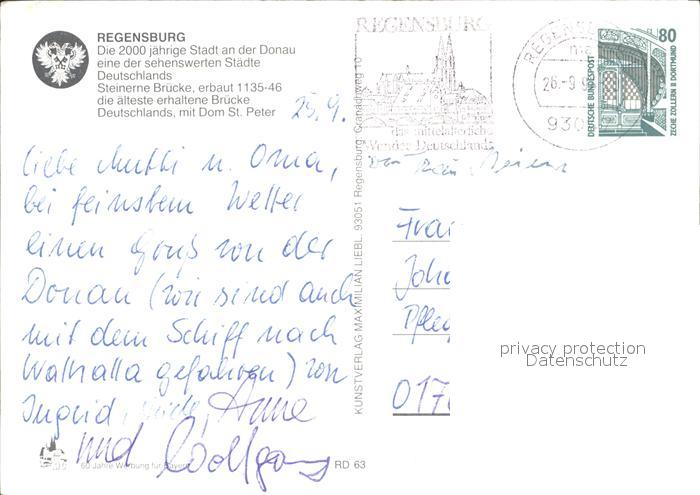 REGENSBURG
Die 2000 jährige Stadt an der Donau
eine der sehenswerten Städte
Deutschlands
Steinerne Brücke, erbaut 1135-46
die älteste erhaltene Brücke
Deutschlands, mit Dom St. Peter
25.9.
Liebe Mutti u. Oma,
bei feinstem Wetter
einen Gruß von der
Donau (wir sind auch
mit dem Schiff nach
Walhalla gefahren) von
Ingrid, Anne
und Wolfgang
60 Jahre Werbung für Bayern
RD 63
KUNSTVERLAG MAXIMILIAN LIEBL, 93051 Regensburg, Cranachweg 10
REGENSBURG
das mittelalterliche
Wunder Deutschlands
REGENS
26.-9.9
930
80
DEUTSCHE BUNDESPOST
ZECHE ZOLLERN II DORTMUND
Frau
Joh
Pfleg
017
privacy protection
Datenschutz